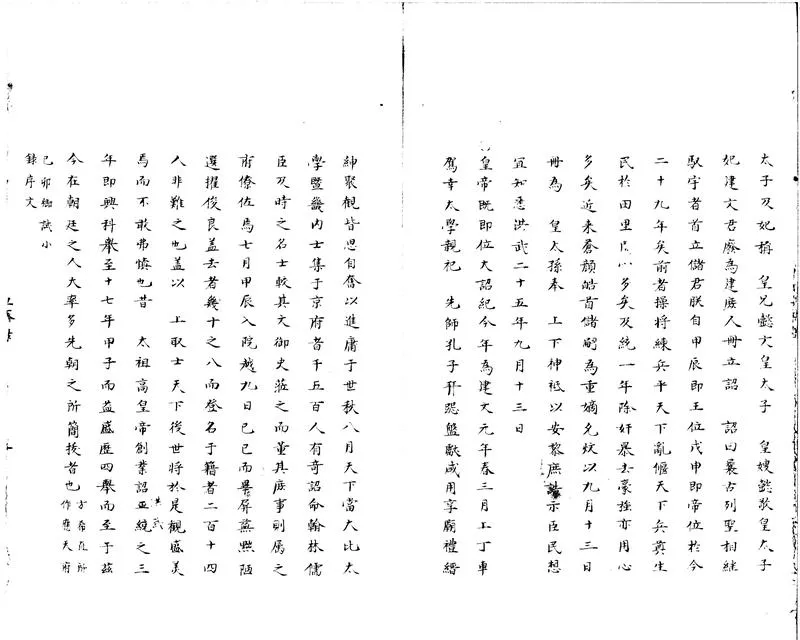 太子及妃稱　皇兄懿文皇太子　皇嫂懿敬皇太子
妃建文君廢為建庶人冊立詔　詔曰曩古列聖相繼
馭宇者首立儲君朕自甲辰即王位戊申即帝位於今
二十九年矣前者操將練兵平天下亂偃天下兵奠生
民於田里用心多矣及統一年除奸暴去豪強亦用心
多矣近來蒼顏皓首儲嗣為重嫡允炆以九月十三日
冊為　皇太孫奉　上下神祗以安黎庶誥示臣民想
宜知悉洪武二十五年九月十三日
皇帝既即位大詔紀今年為建文元年春三月上丁車
駕幸太學親祀　先師孔子罍盤獻咸用享廟禮縉
紳聚觀皆思自奮以進庸于世秋八月天下當大比太
學暨畿內士集于京府者千五百人有奇詔命翰林儒
臣及時之名士較其文御史蒞之而董其庶事則屬之
府僚佐焉七月甲辰入院越九日己巳而畢屏蕪黜陋
選擢俊良蓋去者幾十之八而登名于籍者二百十四
人非難之也蓋以　上取士天下後世將於是觀盛美
焉而不敢弗慎也昔　太祖高皇帝創業詔正統之三
洪武
年即興科舉至十七年甲子而益盛歷四舉而至于茲
今在朝廷之人大率多先朝之所簡拔者也
方希直所
作應天府
己卯鄉試小
錄序文